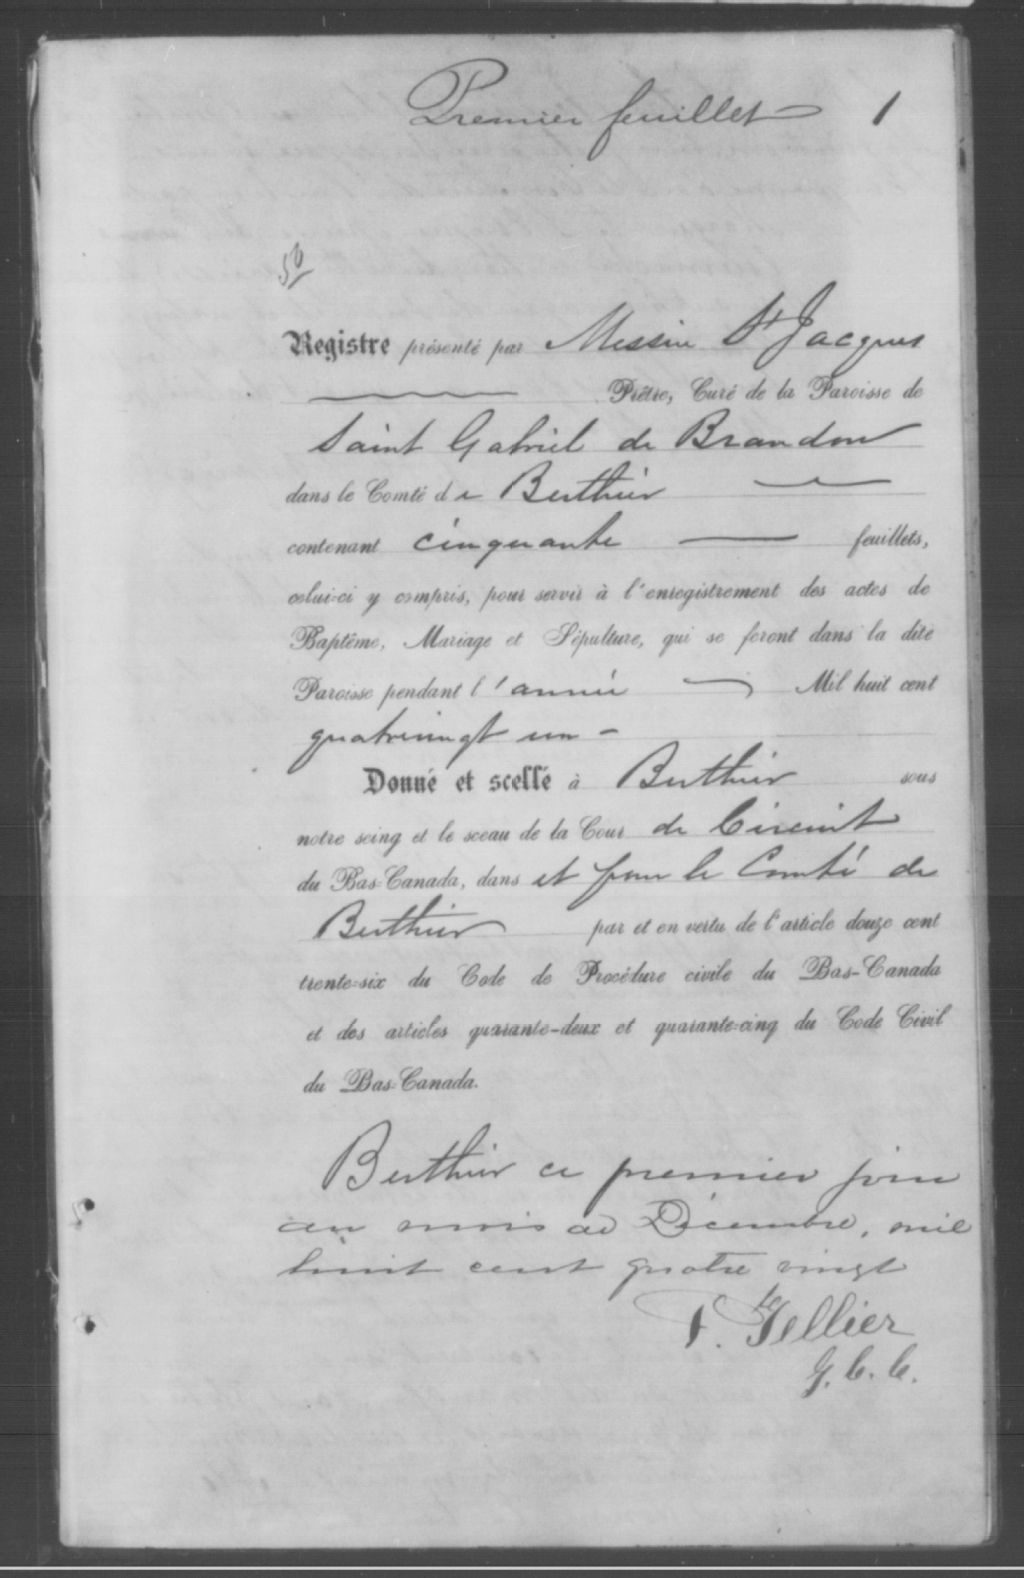 Premier feuillet 1
50
Registre présenté par Messire St Jacques
Prêtre, Curé de la Paroisse de
Saint Gabriel de Brandon
dans le Comté de Berthier
contenant cinquante feuillets,
celui-ci y compris, pour servir à l'enregistrement des actes de
Baptême, Mariage et Sépulture, qui se feront dans la dite
Paroisse pendant l'année Mil huit cent
quatrevingt un -
Donné et scellé à Berthier sous
notre seing et le sceau de la Cour de Circuit
du Bas-Canada, dans et pour le Comté de
Berthier par et en vertu de l'article douze cent
trente-six du Code de Procédure civile du Bas-Canada
et des articles quarante-deux et quarante-cinq du Code Civil
du Bas-Canada.
Berthier ce premier jour
du mois de Décembre, mil
huit cent quatre vingt
Tellier
G. C. C.